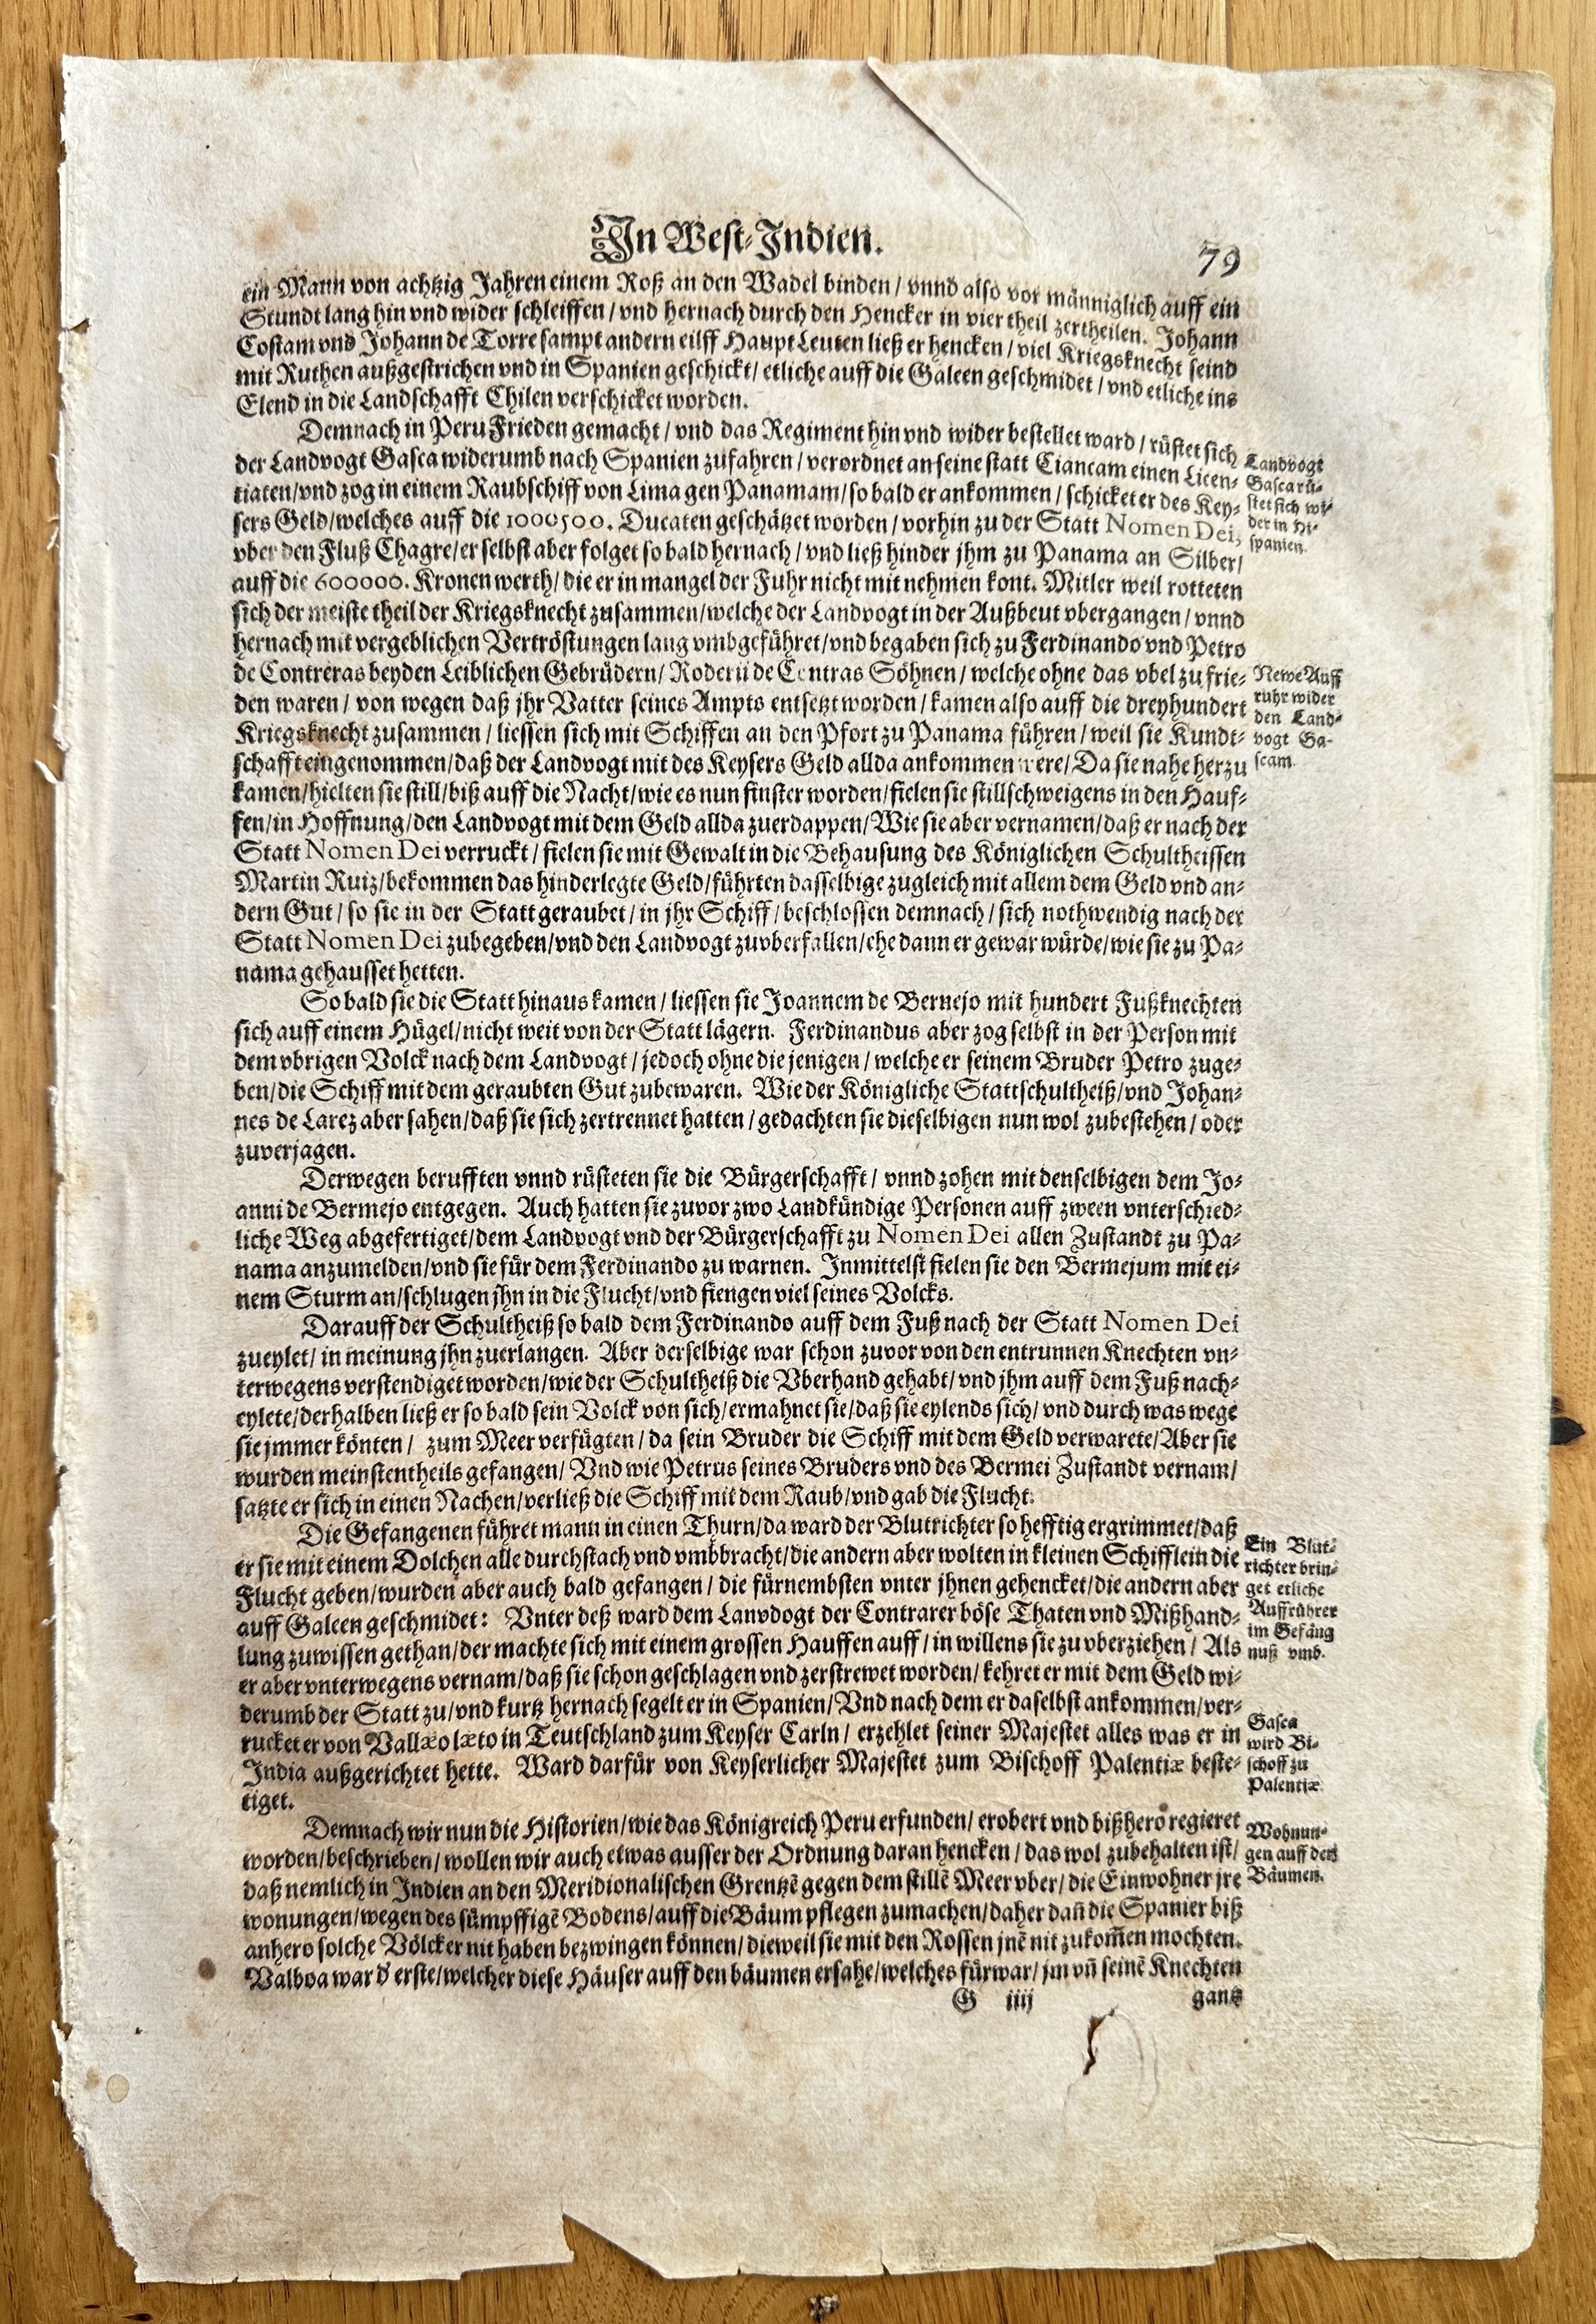 In West-Indien.
79
ein Mann von achtzig Jahren einem Roß an den Wadel binden / vnnd also vor männiglich auff ein
Stundt lang hin vnd wider schleiffen / vnd hernach durch den Hencker in vier theil zertheilen. Johann
Costam vnd Johann de Torre sampt andern eilff Haupt Leuten ließ er hencken / viel Kriegsknecht seind
mit Ruthen außgestrichen vnd in Spanien geschickt / etliche auff die Galeen geschmidet / vnd etliche ins
Elend in die Landschafft Chilen verschicket worden.
Demnach in Peru Frieden gemacht / vnd das Regiment hin vnd wider bestellet ward / rüstet sich
der Landvogt Gasca widerumb nach Spanien zufahren / verordnet an seine statt Ciancam einen Licen-
tiaten / vnd zog in einem Raubschiff von Lima gen Panamam / so bald er ankommen / schicket er des Key-
sers Geld / welches auff die 1000500. Ducaten geschätzet worden / vorhin zu der Statt Nomen Dei,
vber den Fluß Chagre / er selbst aber folget so bald hernach / vnd ließ hinder jhm zu Panama an Silber /
auff die 600000. Kronen werth / die er in mangel der Fuhr nicht mit nehmen kont. Mitler weil rotteten
sich der meiste theil der Kriegsknecht zusammen / welche der Landvogt in der Außbeut vbergangen / vnnd
hernach mit vergeblichen Vertröstungen lang vmbgeführet / vnd begaben sich zu Ferdinando vnd Petro
de Contreras beyden Leiblichen Gebrüdern / Roderii de Contras Söhnen / welche ohne das vbel zu frie-
den waren / von wegen daß jhr Vatter seines Ampts entsetzt worden / kamen also auff die dreyhundert
Kriegsknecht zusammen / liessen sich mit Schiffen an den Pfort zu Panama führen / weil sie Kundt-
schafft eingenommen / daß der Landvogt mit des Keysers Geld allda ankommen were / Da sie nahe herzu
kamen / hielten sie still / biß auff die Nacht / wie es nun finster worden / fielen sie stillschweigens in den Hauf-
fen / in Hoffnung / den Landvogt mit dem Geld allda zuerdappen / Wie sie aber vernamen / daß er nach der
Statt Nomen Dei verruckt / fielen sie mit Gewalt in die Behausung des Königlichen Schultheissen
Martin Ruiz / bekommen das hinderlegte Geld / führten dasselbige zugleich mit allem dem Geld vnd an-
dern Gut / so sie in der Statt geraubet / in jhr Schiff / beschlossen demnach / sich nothwendig nach der
Statt Nomen Dei zubegeben / vnd den Landvogt zuvberfallen / ehe dann er gewar würde / wie sie zu Pa-
nama gehausset hetten.
So bald sie die Statt hinaus kamen / liessen sie Joannem de Bernejo mit hundert Fußknechten
sich auff einem Hügel / nicht weit von der Statt lägern. Ferdinandus aber zog selbst in der Person mit
dem vbrigen Volck nach dem Landvogt / jedoch ohne die jenigen / welche er seinem Bruder Petro zuge-
ben / die Schiff mit dem geraubten Gut zubewaren. Wie der Königliche Stattschultheiß / vnd Johan-
nes de Larez aber sahen / daß sie sich zertrennet hatten / gedachten sie dieselbigen nun wol zubestehen / oder
zuverjagen.
Derwegen berufften vnnd rüsteten sie die Bürgerschafft / vnnd zohen mit denselbigen dem Jo-
anni de Bermejo entgegen. Auch hatten sie zuvor zwo Landkündige Personen auff zween vnterschied-
liche Weg abgefertiget / dem Landvogt vnd der Bürgerschafft zu Nomen Dei allen Zustandt zu Pa-
nama anzumelden / vnd sie für dem Ferdinando zu warnen. Inmittelst fielen sie den Bermejum mit ei-
nem Sturm an / schlugen jhn in die Flucht / vnd fiengen viel seines Volcks.
Darauff der Schultheiß so bald dem Ferdinando auff dem Fuß nach der Statt Nomen Dei
zueylet / in meinung jhn zuerlangen. Aber derselbige war schon zuvor von den entrunnen Knechten vn-
terwegens verstendiget worden / wie der Schultheiß die Vberhand gehabt / vnd jhm auff dem Fuß nach-
eylete / derhalben ließ er so bald sein Volck von sich / ermahnet sie / daß sie eylends sich / vnd durch was wege
sie jmmer könten / zum Meer verfügten / da sein Bruder die Schiff mit dem Geld verwarete / Aber sie
wurden meinstentheils gefangen / Vnd wie Petrus seines Bruders vnd des Bermei Zustandt vernam /
satzte er sich in einen Nachen / verließ die Schiff mit dem Raub / vnd gab die Flucht.
Die Gefangenen führet mann in einen Thurn / da ward der Blutrichter so hefftig ergrimmet / daß
er sie mit einem Dolchen alle durchstach vnd vmbbracht / die andern aber wolten in kleinen Schifflein die
Flucht geben / wurden aber auch bald gefangen / die fürnembsten vnter jhnen gehencket / die andern aber
auff Galeen geschmidet: Vnter deß ward dem Lanvdogt der Contrarer böse Thaten vnd Mißhand-
lung zuwissen gethan / der machte sich mit einem grossen Hauffen auff / in willens sie zu vberziehen / Als
er aber vnterwegens vernam / daß sie schon geschlagen vnd zerstrewet worden / kehret er mit dem Geld wi-
derumb der Statt zu / vnd kurtz hernach segelt er in Spanien / Vnd nach dem er daselbst ankommen / ver-
rucket er von Vallæo læto in Teutschland zum Keyser Carln / erzehlet seiner Majestet alles was er in
India außgerichtet hette. Ward darfür von Keyserlicher Majestet zum Bischoff Palentiæ beste-
tiget.
Demnach wir nun die Historien / wie das Königreich Peru erfunden / erobert vnd bißhero regieret
worden / beschrieben / wollen wir auch etwas ausser der Ordnung daran hencken / das wol zubehalten ist /
daß nemlich in Indien an den Meridionalischen Grentzē gegen dem stillē Meer vber / die Einwohner jre
wonungen / wegen des sümpffigē Bodens / auff die Bäum pflegen zumachen / daher dañ die Spanier biß
anhero solche Völcker nit haben bezwingen können / dieweil sie mit den Rossen jnē nit zukom̃en mochten.
Valboa war d' erste / welcher diese Häuser auff den bäumen ersahe / welches fürwar / jm vñ seinē Knechten
G iiij
gantz
Landvogt
Gasca rü-
stet sich wi-
der in Hi-
spanien.
Newe Auff
ruhr wider
den Land-
vogt Ga-
scam.
Ein Blut-
richter brin-
get etliche
Auffrührer
im Gefäng
nuß vmb.
Gasca
wird Bi-
schoff zu
Palentiæ
Wohnun-
gen auff den
Bäumen.